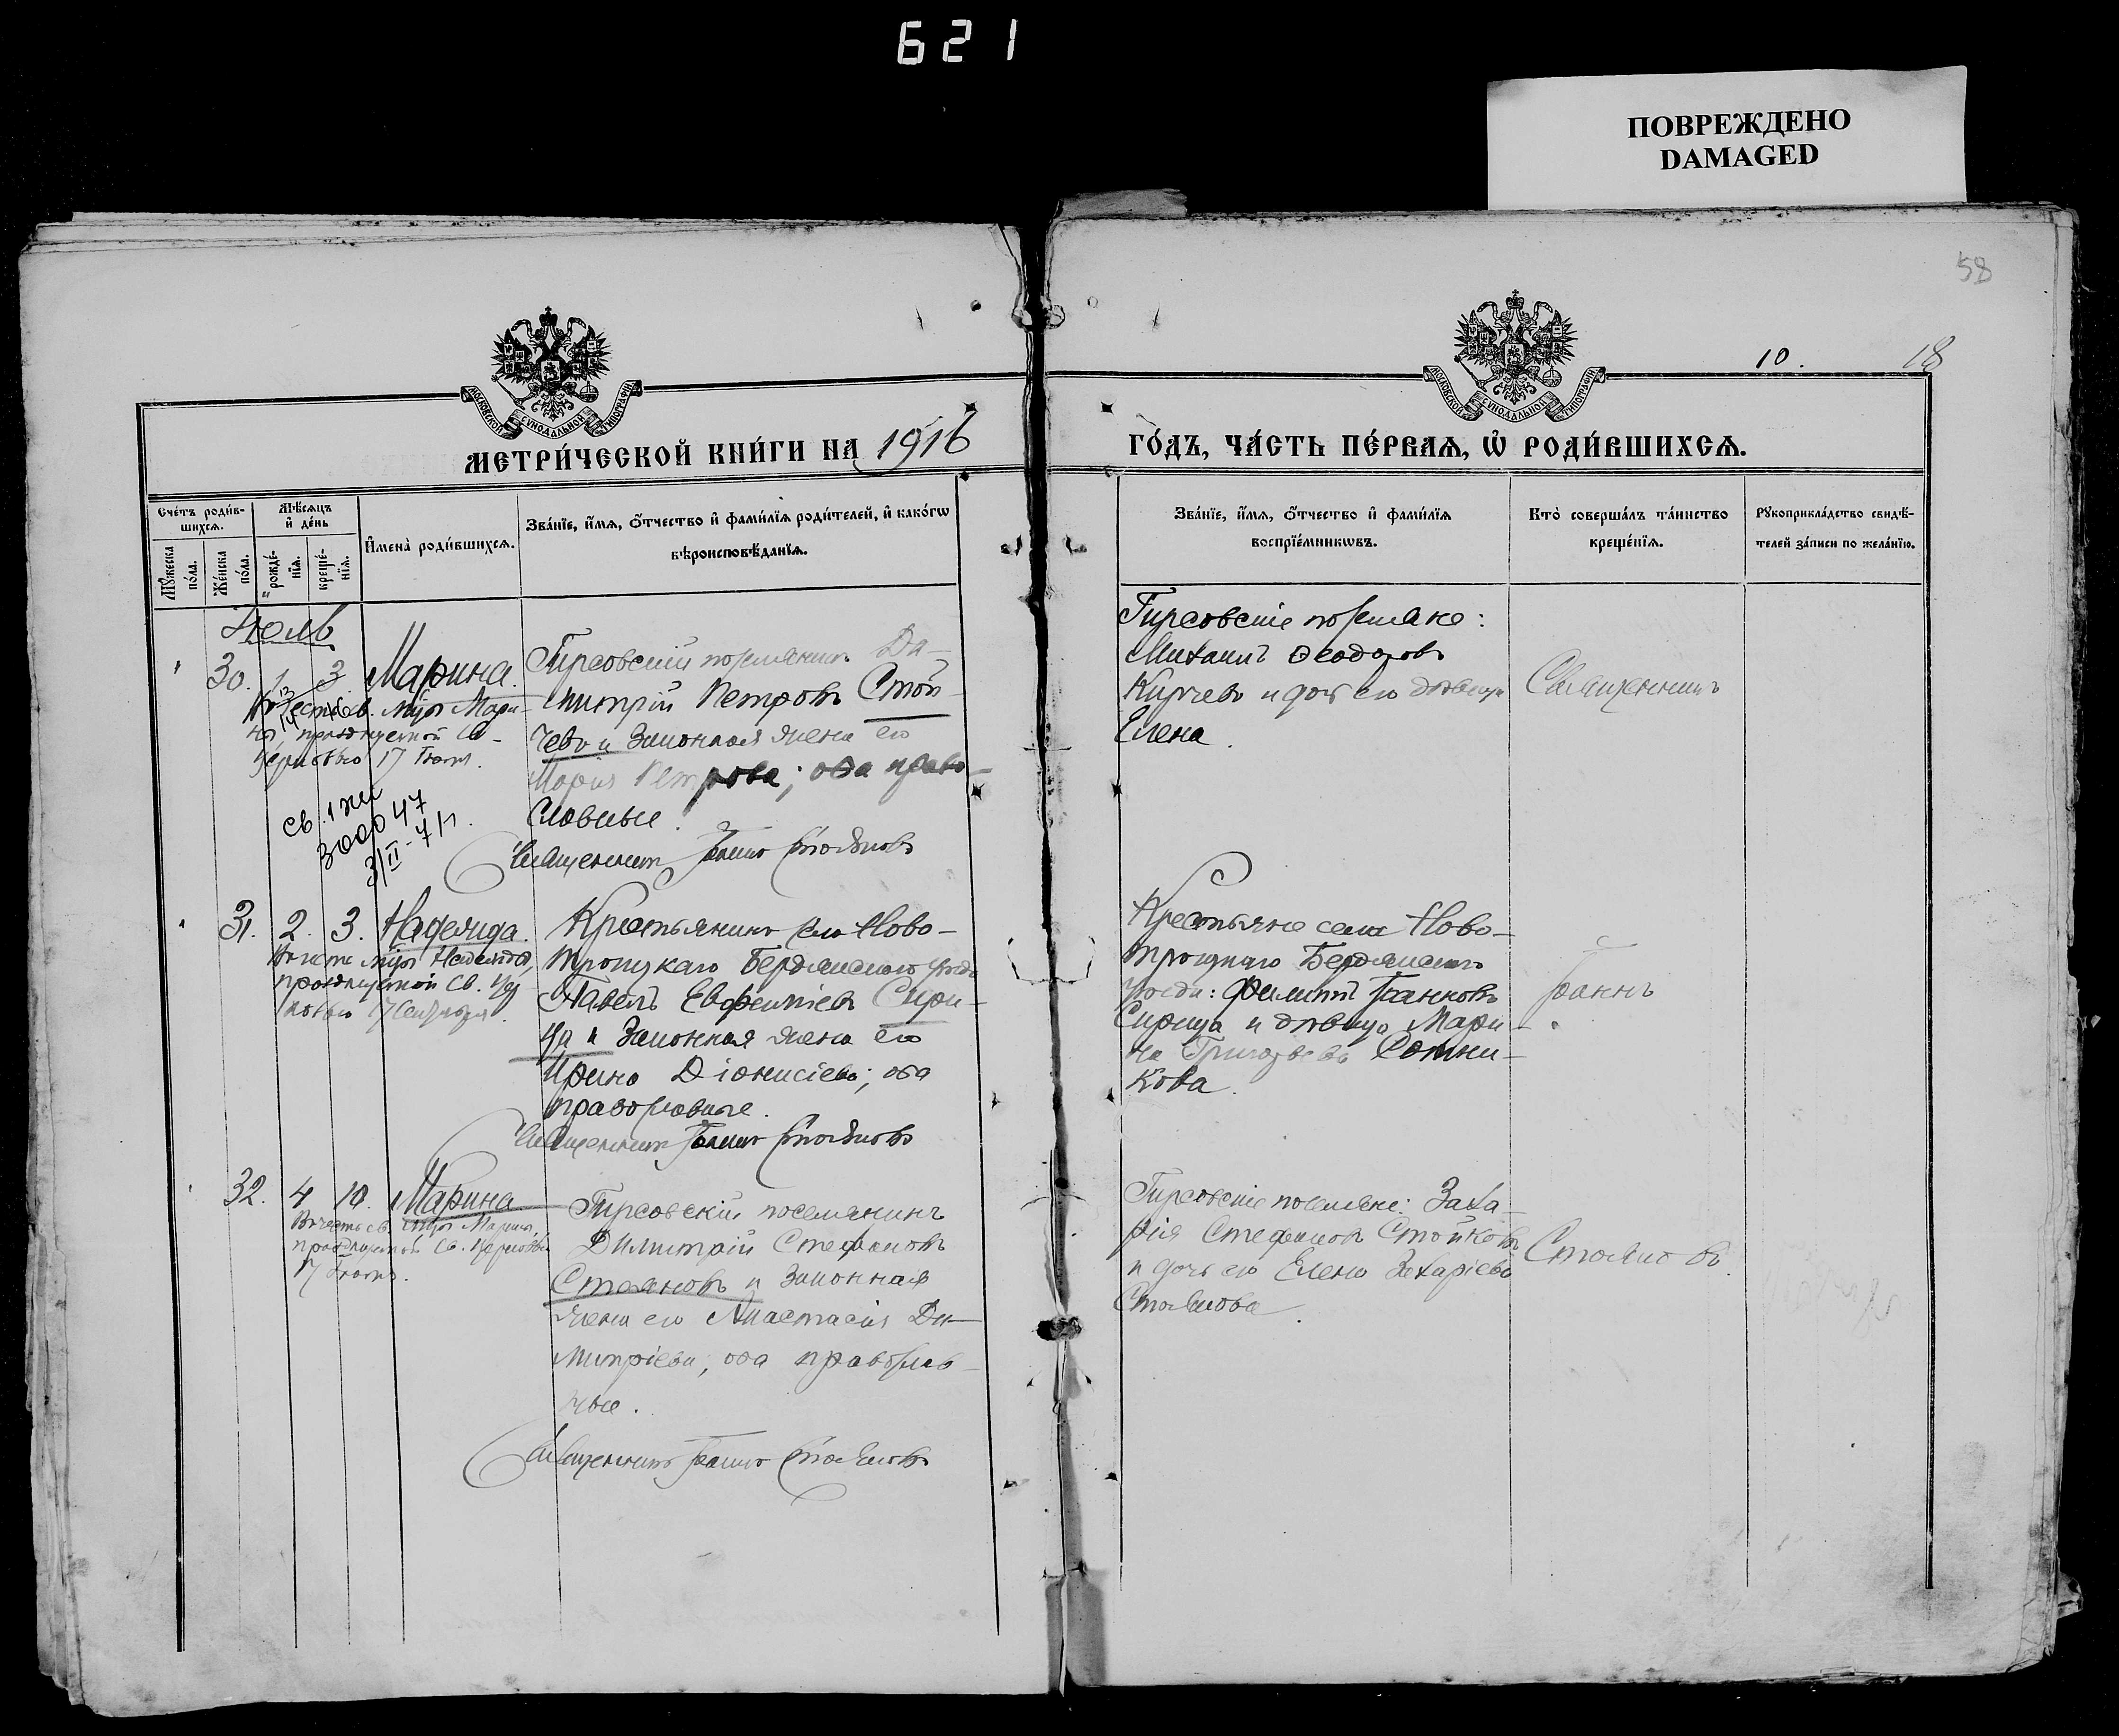 621
ПОВРЕЖДЕНО
DAMAGED
58
10.
18
МОСКОВСКОЙ СѴНОДАЛЬНОЙ ТИПОГРАФІИ
МОСКОВСКОЙ СѴНОДАЛЬНОЙ ТИПОГРАФІИ
МЕТРИ́ЧЕСКОЙ КНИ́ГИ НА 1916
ГО́ДЪ, ЧА́СТЬ ПЕ́РВАѦ, Ѿ РОДИ́ВШИХСѦ.
Сче́тъ роди́в-
шихсѧ.
Мѣ́сѧцъ
и҆ де́нь
Мꙋ́жеска
по́ла.
Же́нска
по́ла.
рожде́-
нїѧ.
креще́-
нїѧ.
И҆мена̀ роди́вшихсѧ.
Зва́нїе, и҆́мѧ, ѻ҆́тчество и҆ фами́лїѧ роди́телей, и҆ како́гѡ
вѣроисповѣ́данїѧ.
Зва́нїе, и҆́мѧ, ѻ҆́тчество и҆ фами́лїѧ
воспрїе́мникѡвъ.
Кто̀ соверша́лъ та́инство
креще́нїѧ.
Рꙋкоприкла́дство свидѣ́-
телей за́писи по жела́нїю.
Іюль
30. 1. 3. Марина.
Во честь св. муч. Мари-
ны, празднуемой Св.
Церковью 17 Іюля.
3000 47
3/II-7
Гирсовскій поселянинъ Ди-
митрій Петровъ Стой-
чевъ и законная жена его
Марія Петрова; оба право-
славные.
Священникъ Іоаннъ Стояновъ
Гирсовскіе поселяне:
Михаилъ Ѳеодоровъ
Кирчевъ и дочь его дѣвица
Елена.
Священникъ
31. 2. 3. Надежда.
Во честь муч. Надежды,
празднуемой Св. Цер-
ковью 17 Сентября.
Крестьянинъ села Ново-
троицкаго Бердянскаго уѣзда
Павелъ Евфиміевъ Сири-
ца и законная жена его
Ирина Діонисіева; оба
православные.
Священникъ Іоаннъ Стояновъ
Крестьяне села Ново-
троицкаго Бердянскаго
уѣзда: Филиппъ Іоанновъ
Сирица и дѣвица Мари-
на Григорьева Сотни-
кова.
Іоаннъ
32. 4 10. Марина
Во честь св. муч. Марины,
празднуемой Св. Церковью
17 Іюля.
Гирсовскій поселянинъ
Димитрій Стефановъ
Стояновъ и законная
жена его Анастасія Ди-
митріева, оба православ-
ные.
Священникъ Іоаннъ Стояновъ
Гирсовскіе поселяне: Заха-
рія Стефановъ Стойковъ
и дочь его Елена Захаріева
Стоянова.
Стояновъ.